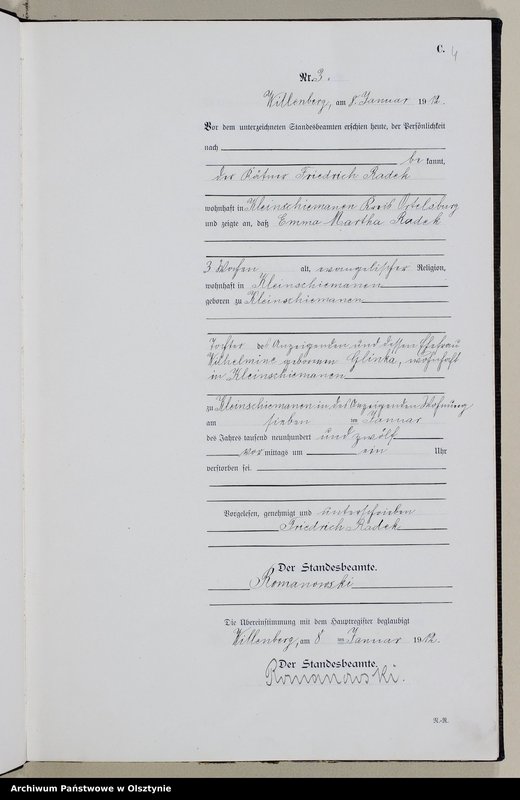 C.
4
Nr. 3.
Willenberg, am 8. Januar 1912.
Vor dem unterzeichneten Standesbeamten erschien heute, der Persönlichkeit
nach
be kannt,
der Kätner Friedrich Radek
wohnhaft in Kleinschiemanen Kreis Ortelsburg
und zeigte an, daß Emma Martha Radek
3 Wochen alt, evangelischer Religion,
wohnhaft in Kleinschiemanen
geboren zu Kleinschiemanen
Tochter des Anzeigenden und dessen Ehefrau
Wilhelmine geborenen Glinka, wohnhaft
in Kleinschiemanen
zu Kleinschiemanen in des Anzeigenden Wohnung
am sieben ten Januar
des Jahres tausend neunhundert und zwölf
vor mittags um ein Uhr
verstorben sei.
Vorgelesen, genehmigt und unterschrieben
Friedrich Radek
Der Standesbeamte.
Romanowski
Die Übereinstimmung mit dem Hauptregister beglaubigt
Willenberg, am 8 ten Januar 1912.
Der Standesbeamte.
Romanowski.
N.-R.
Archiwum Państwowe w Olsztynie